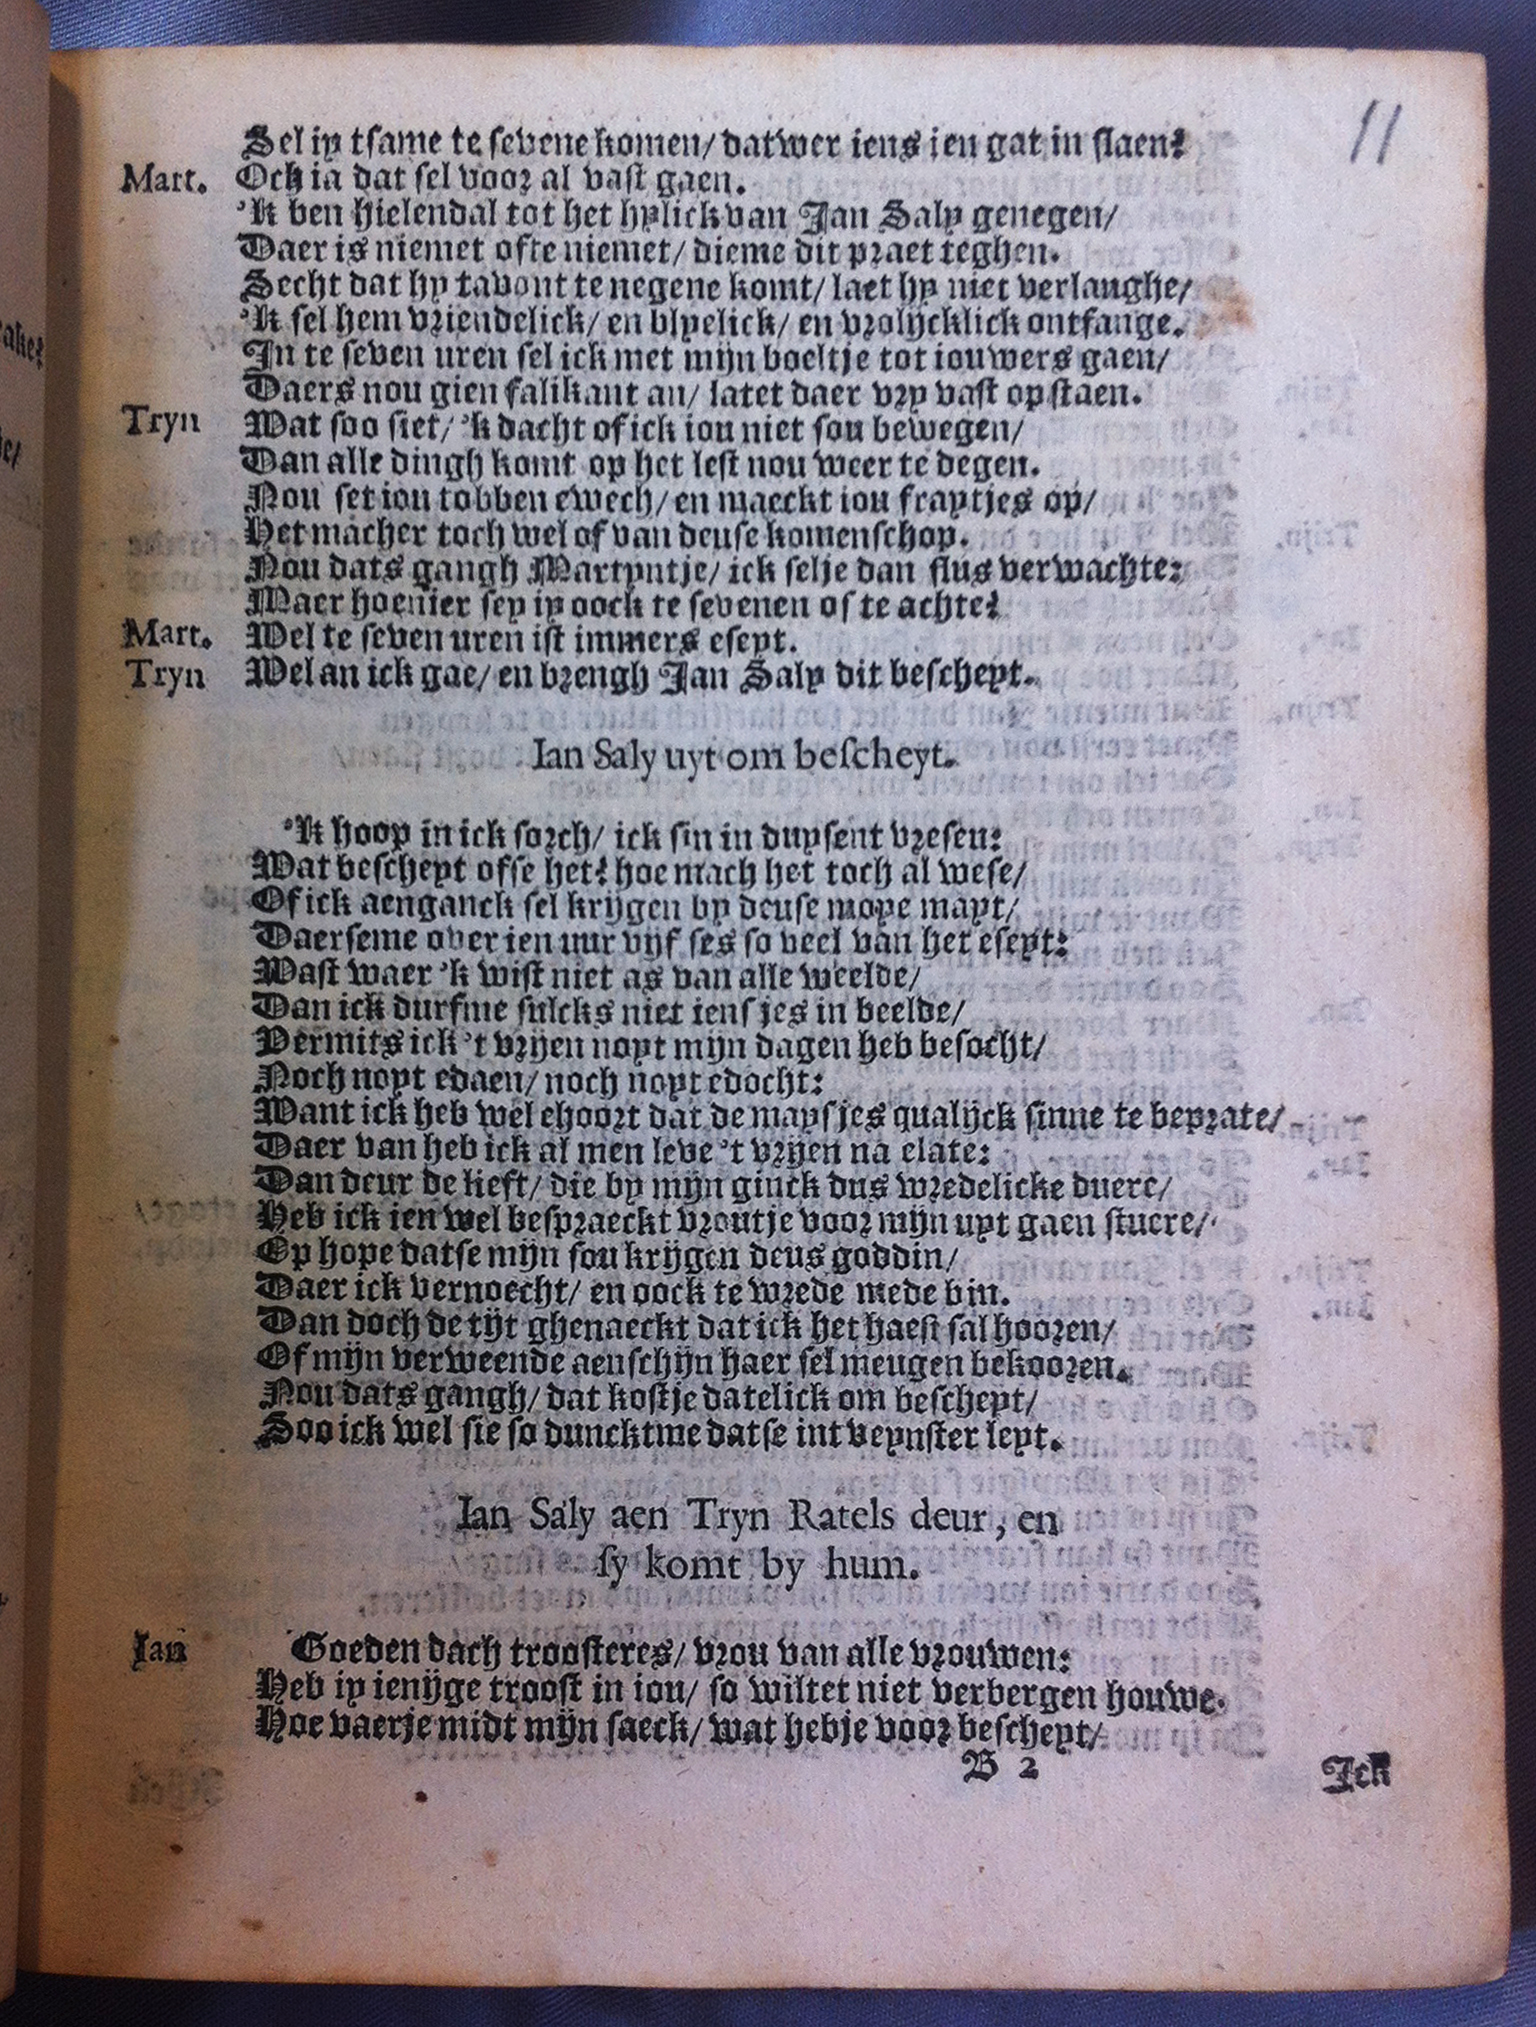 11
Sel iy tsame te sevene komen/ datwer iens ien gat in slaen?
Mart. Och ia dat sel voor al vast gaen.
'K ben hielendal tot het hylick van Jan Saly genegen/
Daer is niemet ofte niemet/ dieme dit praet teghen.
Secht dat hy tavont te negene komt/ laet hy niet verlanghe/
'K sel hem vriendelick/ en blyelick/ en vrolijcklick ontfange.
In te seven uren sel ick met mijn boeltje tot iouwers gaen/
Daers nou gien falikant an/ latet daer vry vast op staen.
Tryn Wat soo siet/ 'k dacht of ick iou niet sou bewegen/
Dan alle dingh komt op het lest nou weer te degen.
Nou set iou tobben ewech/ en maeckt iou fraytjes op/
Het macher toch wel of van deuse komenschop.
Nou dats gangh Martyntje/ ick selje dan flus verwachte:
Maer hoenier sey iy oock te sevenen of te achte?
Mart. Wel te seven uren ist immers eseyt.
Tryn Wel an ick gae/ en brengh Jan Saly dit bescheyt.
Ian Saly uyt om bescheyt.
'K hoop in ick sorch/ ick sin in duysent vresen:
Wat bescheyt ofse het? hoe mach het toch al wese/
Of ick aenganck sel krijgen by deuse moye mayt/
Daerseme over ien uur vijf ses so veel van het eseyt:
Wast waer 'k wist niet as van alle weelde/
Dan ick durfme sulcks niet iensjes in beelde/
Vermits ick 't vrijen noyt mijn dagen heb besocht/
Noch noyt edaen/ noch noyt edocht:
Want ick heb wel ehoort dat de maysjes qualijck sinne te beprate/
Daer van heb ick al men leve 't vrijen na elate:
Dan deur de lieft/ die by mijn ginck dus wredelicke duere/
Heb ick ien wel bespraeckt vroutje voor mijn uyt gaen stuere/
Op hope datse mijn sou krijgen deus goddin/
Daer ick vernoecht/ en oock te wrede mede bin.
Dan doch de tijt ghenaeckt dat ick het haest sal hooren/
Of mijn verweende aenschijn haer sel meugen bekooren.
Nou dats gangh/ dat kostje datelick om bescheyt/
Soo ick wel sie so duncktme datse int veynster leyt.
Ian Saly aen Tryn Ratels deur, en
sy komt by hum.
Ian Goeden dach troosteres/ vrou van alle vrouwen:
Heb iy ienijge troost in iou/ so wiltet niet verbergen houwe.
Hoe vaerje midt mijn saeck/ wat hebje voor bescheyt/
B 2 Ick